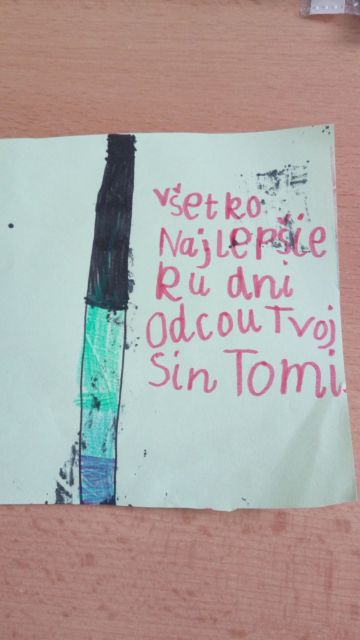 všetko
Najlepšie
ku dni
Odcou Tvoj
Sin Tomi.